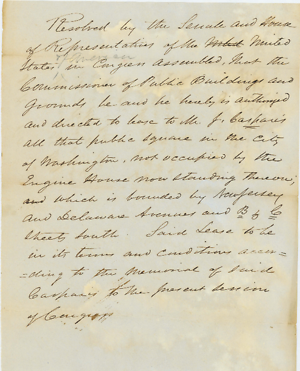 Resolved by the Senate and House
of Representatives of the United
States in Congress Assembled, That the
Commissioner of Public Buildings and
Grounds be and he hereby is authorized
and directed to lease to M. J. Casparis
all that public square in the City
of Washington, not occupied by the
Engine House now standing thereon;
and which is bounded by New Jersey
and Delaware Avenues and B & C
Streets South. Said Lease to be
in its terms and conditions accor=
=ding to the Memorial of said
Casparis to the present session
of Congress